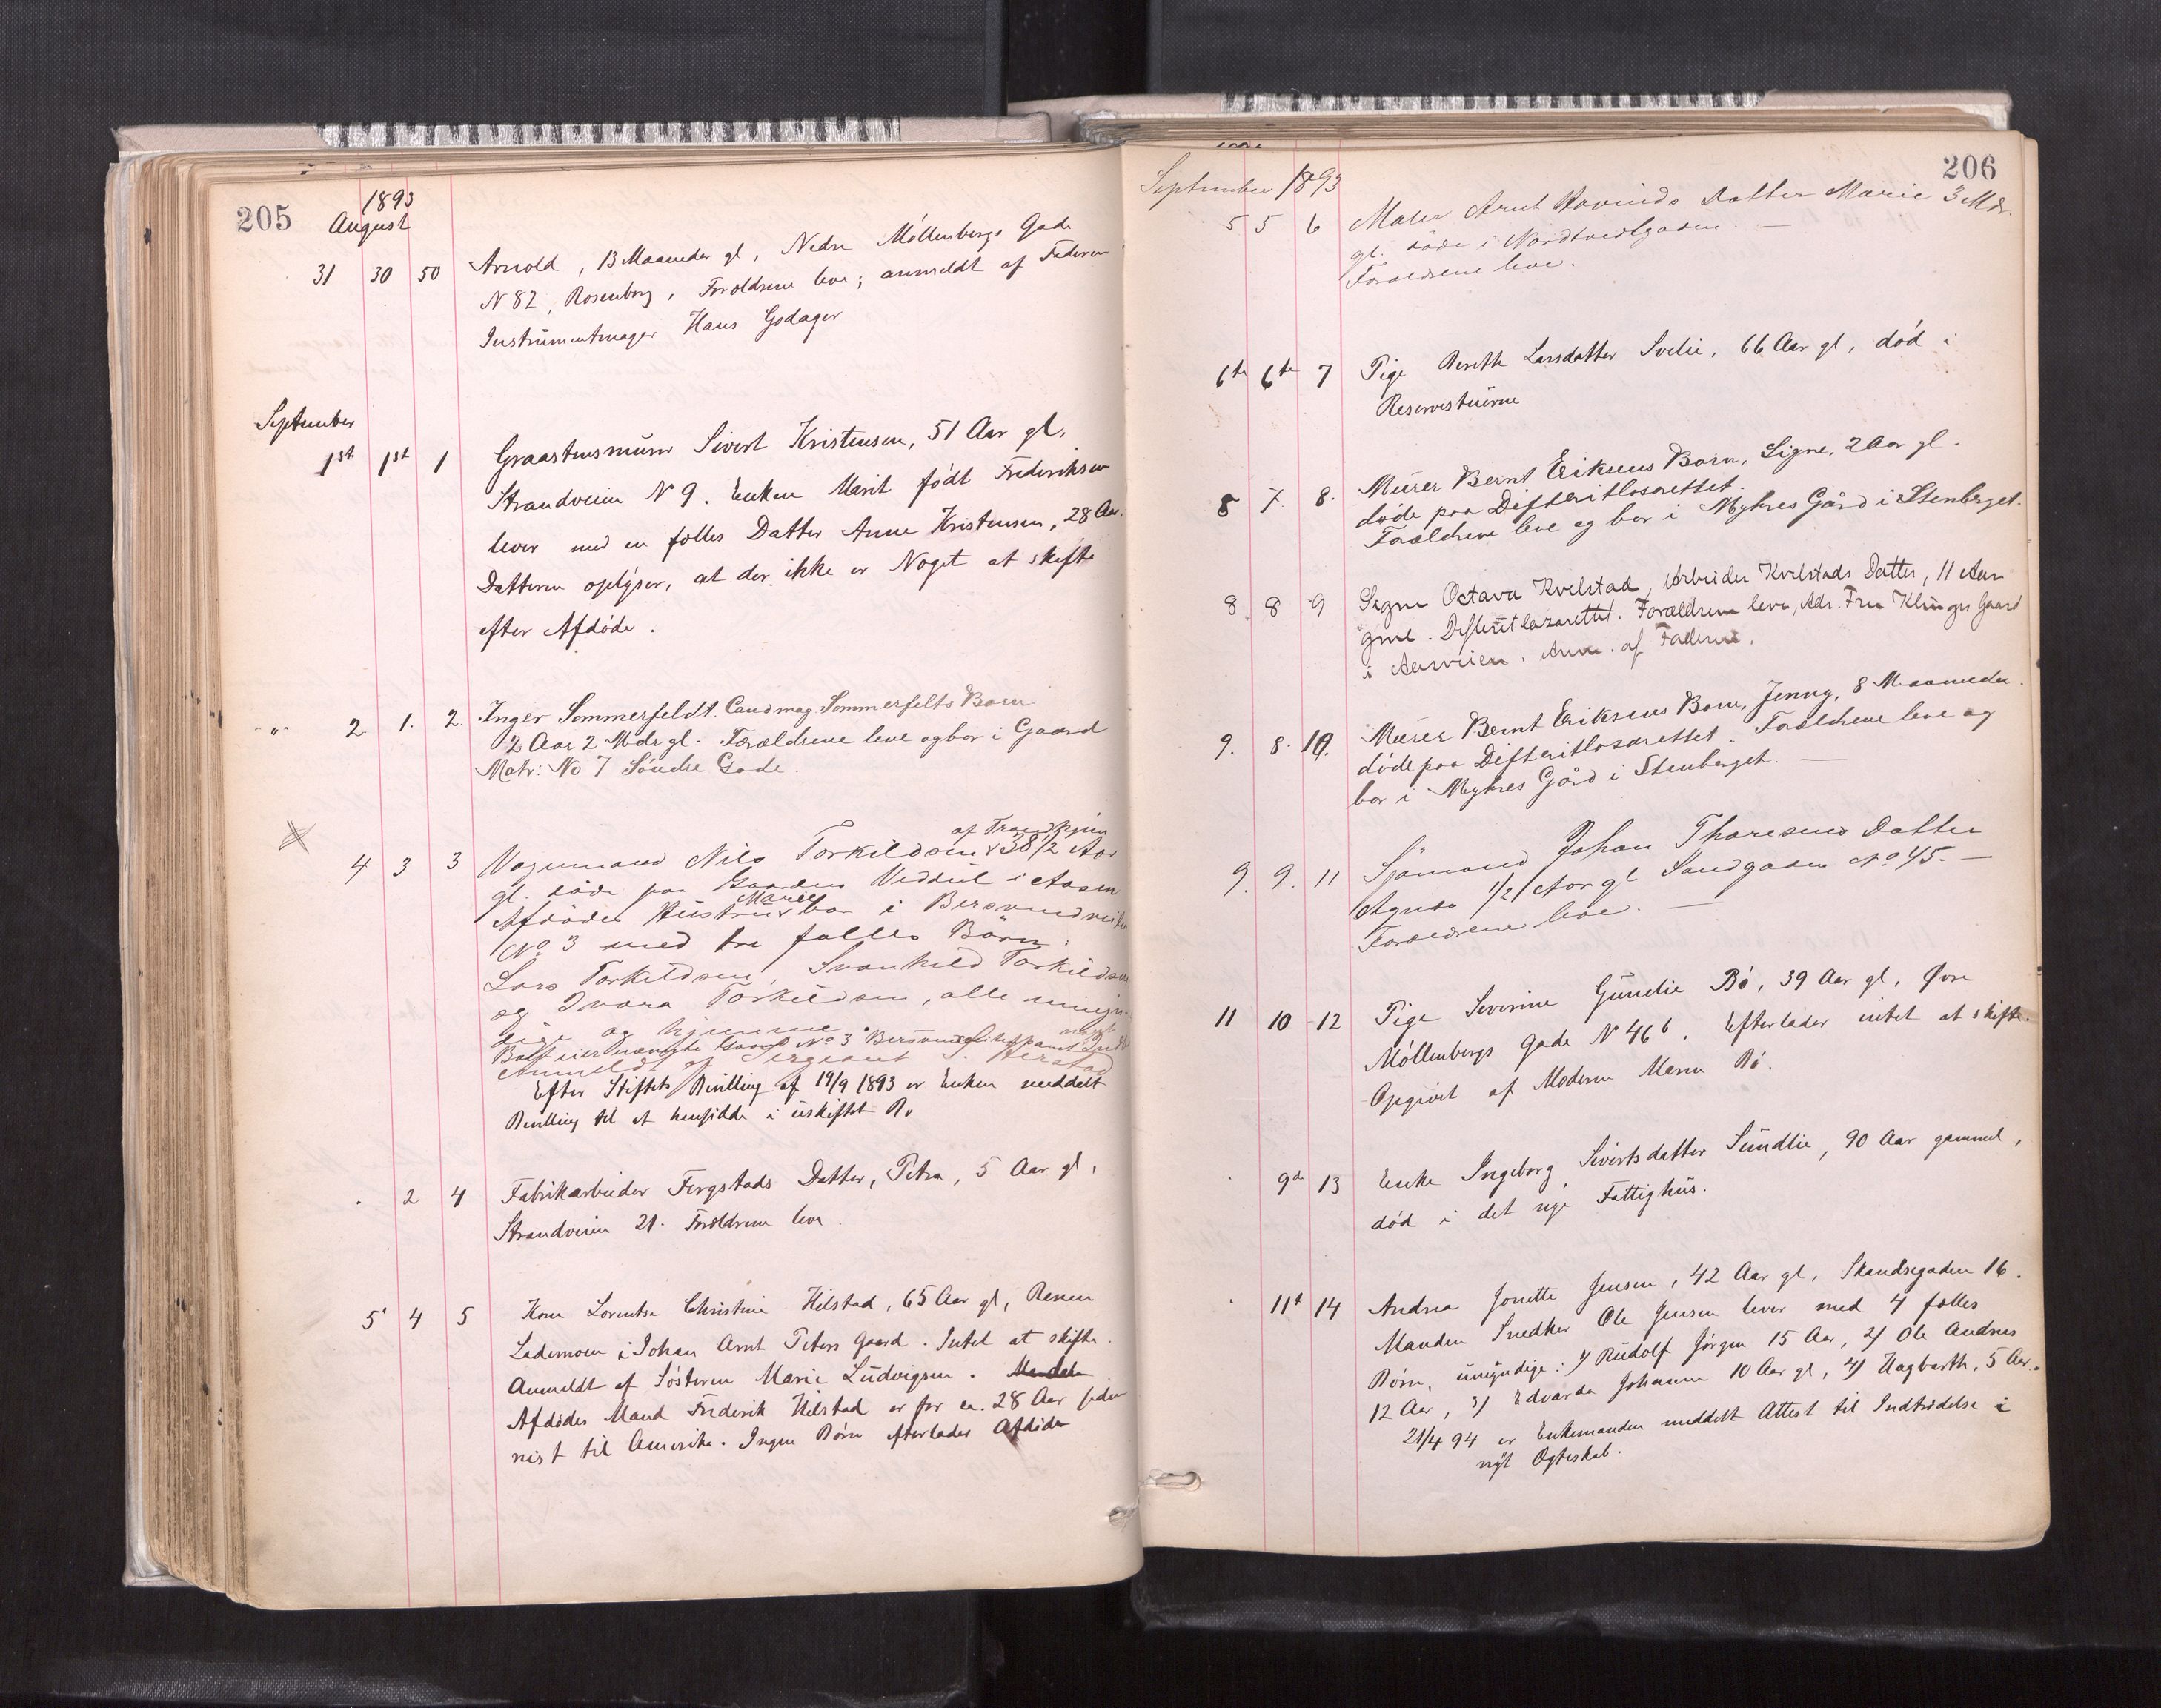 205
1893
August
31 30 50 Arnold, 13 Maaneder gl, Nedre Möllenbergs Gade
N 82, Rosenborg, Forældrene leve; anmeldt af Faderen
Instrumentmager Hans Godager
September
1st 1st 1 Graastensmurer Sivert Kristensen, 51 Aar gl,
Strandveien N 9. Enken Marit födt Frederiksen
lever med en fælles Datter Anne Kristensen, 28 Aar.
Datteren oplyser, at der ikke er Noget at skifte
efter Afdöde.
" 2 1. 2. Inger Sommerfeldt. Cand mag. Sommerfelts Barn
2 Aar 2 Mdr gl. Forældrene leve og bor i Gaard
Matr: No 7 Söndre Gade.
af Trondhjem
4 3 3 Vognmand Nils Torkildsen 38 1/2 Aar
gl. döde paa Gaarden Veddul i Aasen
Marie
Afdödes Hustru bor i Bersvendveiten
No 3 med tre fælles Börn:
Lars Torkildsen, Svanhild Torkildsen
og Ivara Torkildsen, alle umyn-
dige og hjemme.
Boet eier nævnte Gaard No 3 Bersvendveiten samt noget
Anmeldt af Sergeant
Efter Stiftets Bevilling af 19/9 1893 er Enken meddelt
Bevilling til at hensidde i uskiftet Bo
. 2 4 Fabrikarbeider Fergstads Datter, Petra, 5 Aar gl,
Strandveien 21. Forældrene leve.
5 4 5 Kone Lorentse Christine Hilstad, 65 Aar gl,
Lademoen i Johan Arnt Peters Gaard. Intet at skifte.
Anmeldt af Sösteren Marie Ludvigsen.
Afdödes Mand Frederik Hilstad er for ca. 28 Aar siden
reist til Amerika. Ingen Börn efterlader Afdöde
206
September 1893
5 5 6 Maler Arnt Havinds Datter Marie 3 Mdr.
gl. döde i Nordtvedtgaden. —
Forældrene leve.
6te 6te 7 Pige Berethe Larsdatter Svelie, 66 Aar gl, död i
Reservestuerne
8 7. 8. Murer Bernt Eriksens Barn, Signe, 2 Aar gl.
döde paa Difteritlasarettet.
Forældrene leve og bor i Myhres Gård i Stenberget.
8 8 9 Signe Octava Kvelstad, Arbeider Kvelstads Datter, 11 Aar
gml. Difteritlazarettet. Forældrene leve, Adr. Fru Klinges Gaard
i Aasveien. Anm. af Faderen.
9. 8. 10. Murer Bernt Eriksens Barn, Jenny, 8 Maaneder.
döde paa Difteritlasarettet. Forældrene leve og
bor i Myhres Gård i Stenberget. —
9. 9. 11 Sjömand Johan Tharesens Datter
Agnes 1/2 Aar gl Sandgaden No 45. —
Forældrene leve. —
11 10 12 Pige Severine Gunelie Bö, 39 Aar gl, Øvre
Möllenbergs Gade N 46b. Efterlader intet at skifte.
Opgivet af Moderen Maren Bö.
. 9de 13 Enke Ingeborg Sivertsdatter Sundlie, 90 Aar gammel,
död i det nye Fattighus.
. 11t 14 Andrea Jonette Jensen, 42 Aar gl, Skandsegaden 16.
Manden Snedker Ole Jensen lever med 4 fælles
Börn, umyndige: 1) Rudolf Jörgen 15 Aar, 2) Ole Andreas
12 Aar, 3) Edvarda Johanna 10 Aar gl, 4) Hagbarth, 5 Aar.
21/4 94 er Enkemanden meddelt Attest til Indtrædelse i
nyt Ægteskab.